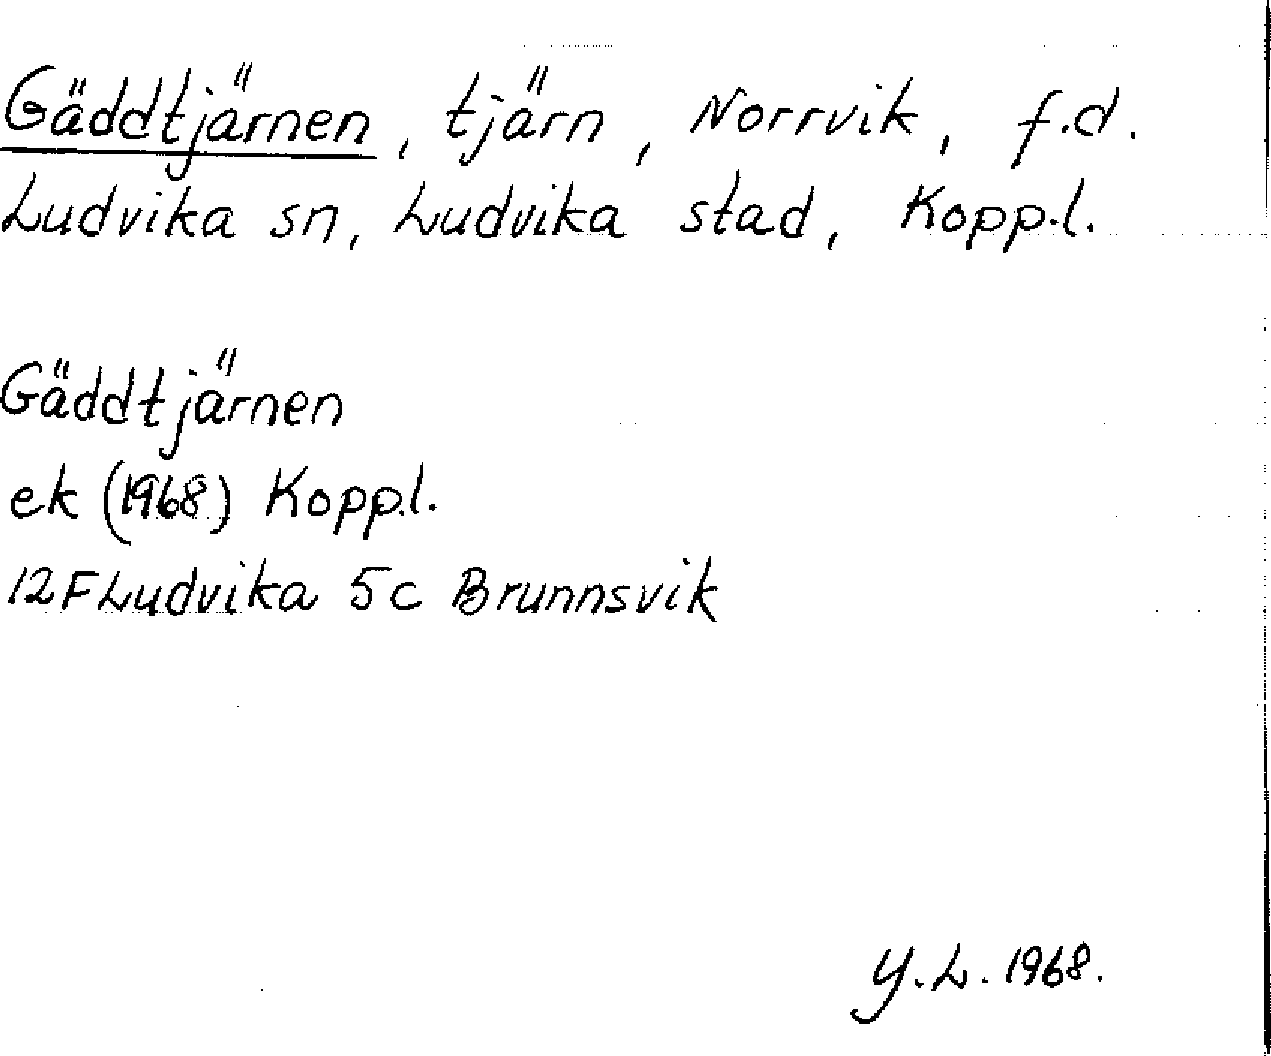 Gäddtjärnen, tjärn, Norrvik, f.d.
Ludvika sn, Ludvika stad, Kopp.l.
Gäddtjärnen
ek (1968) Kopp.l.
12F Ludvika 5c Brunnsvik
Y.L. 1968.